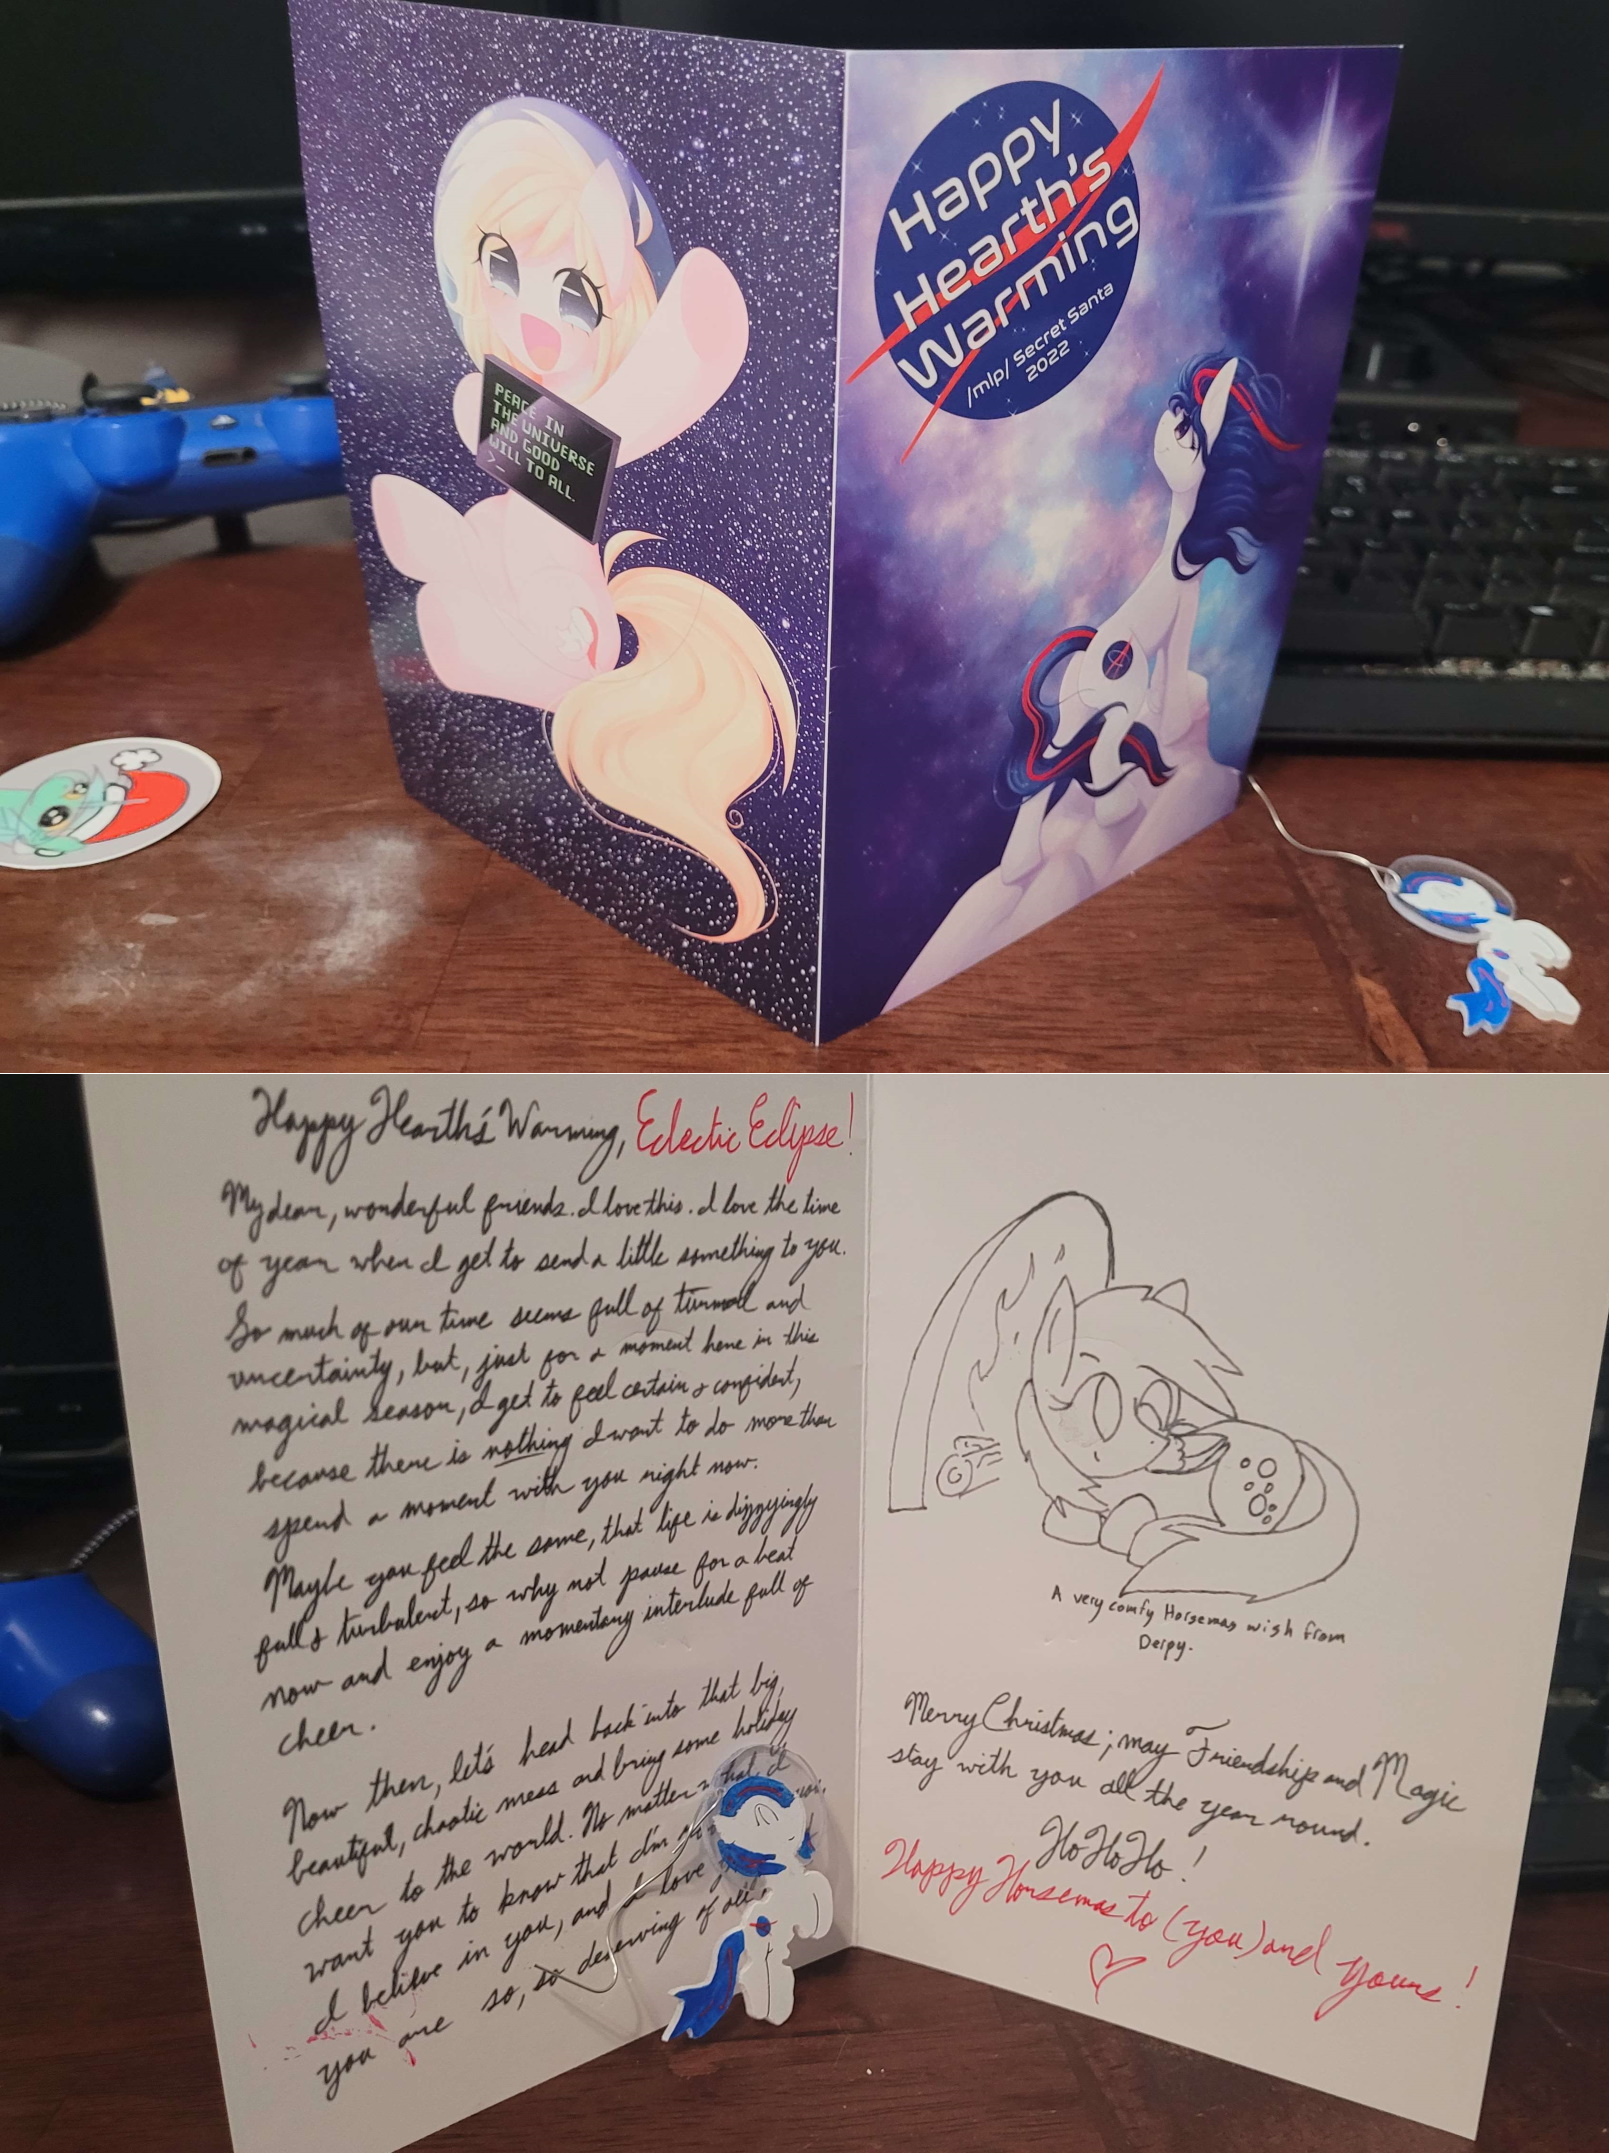 PEACE IN
THE UNIVERSE
AND GOOD
WILL TO ALL.
>_
Happy
Hearth's
Warming
/mlp/ Secret Santa
2022
Happy Hearth's Warming, Eclectic Eclipse!
My dear, wonderful friends. I love this. I love the time
of year when I get to send a little something to you.
So much of our time seems full of turmoil and
uncertainty, but, just for a moment here in this
magical season, I get to feel certain & confident,
because there is nothing I want to do more than
spend a moment with you right now.
Maybe you feel the same, that life is dizzyingly
full & turbulent, so why not pause for a beat
now and enjoy a momentary interlude full of
cheer.
Now then, let's head back into that big,
beautiful, chaotic mess and bring some holiday
cheer to the world. No matter what, I
want you to know that I'm
I believe in you, and I love
you are so, so deserving of
A very comfy Horsemas wish from
Derpy.
Merry Christmas; may Friendship and Magic
stay with you all the year round.
Ho Ho Ho!
Happy Horsemas to (you) and yours!